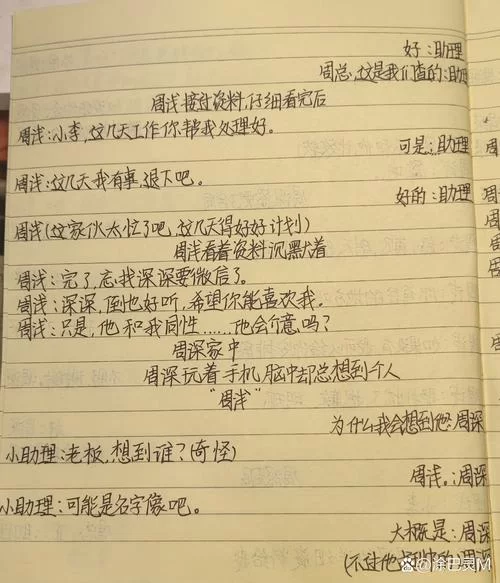 好:助理
周总,这是我们查的:助理
周浅接过资料,仔细看完后
周浅:小李,这几天工作你帮我处理好。
可是:助理
周浅:这几天我有事,退下吧。
好的:助理
周浅(这家伙太忙了吧,这几天得好好计划)
周浅看着资料沉默着
周浅:完了,忘找深深要微信了。
周浅:深深,倒也好听,希望你能喜欢我。
周浅:只是,他和我同性……他会介意吗?
周深家中
周深玩着手机,脑中却总想到个人
“周浅”
为什么我会想到他:周深
小助理:老板,想到谁?(奇怪)
周浅。:周深
小助理:可能是名字像吧。
大概是:周深
(不过他
@涂巴灵M